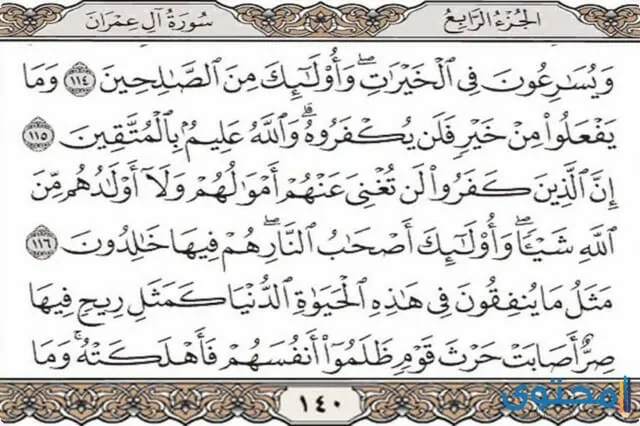 الجُزءُ الرَّابِعُ سُورَةُ آلِ عِمْرَانَ
وَيُسَٰرِعُونَ فِي ٱلْخَيْرَٰتِۖ وَأُوْلَٰٓئِكَ مِنَ ٱلصَّٰلِحِينَ ١١٤ وَمَا
يَفْعَلُواْ مِنْ خَيْرٍ فَلَن يُكْفَرُوهُۗ وَٱللَّهُ عَلِيمُۢ بِٱلْمُتَّقِينَ ١١٥
إِنَّ ٱلَّذِينَ كَفَرُواْ لَن تُغْنِيَ عَنْهُمْ أَمْوَٰلُهُمْ وَلَآ أَوْلَٰدُهُم مِّنَ
ٱللَّهِ شَيْـًٔاۖ وَأُوْلَٰٓئِكَ أَصْحَٰبُ ٱلنَّارِۖ هُمْ فِيهَا خَٰلِدُونَ ١١٦
مَثَلُ مَا يُنفِقُونَ فِي هَٰذِهِ ٱلْحَيَوٰةِ ٱلدُّنْيَا كَمَثَلِ رِيحٍ فِيهَا
صِرٌّ أَصَابَتْ حَرْثَ قَوْمٍ ظَلَمُوٓاْ أَنفُسَهُمْ فَأَهْلَكَتْهُۚ وَمَا
١٤٠
محتوى